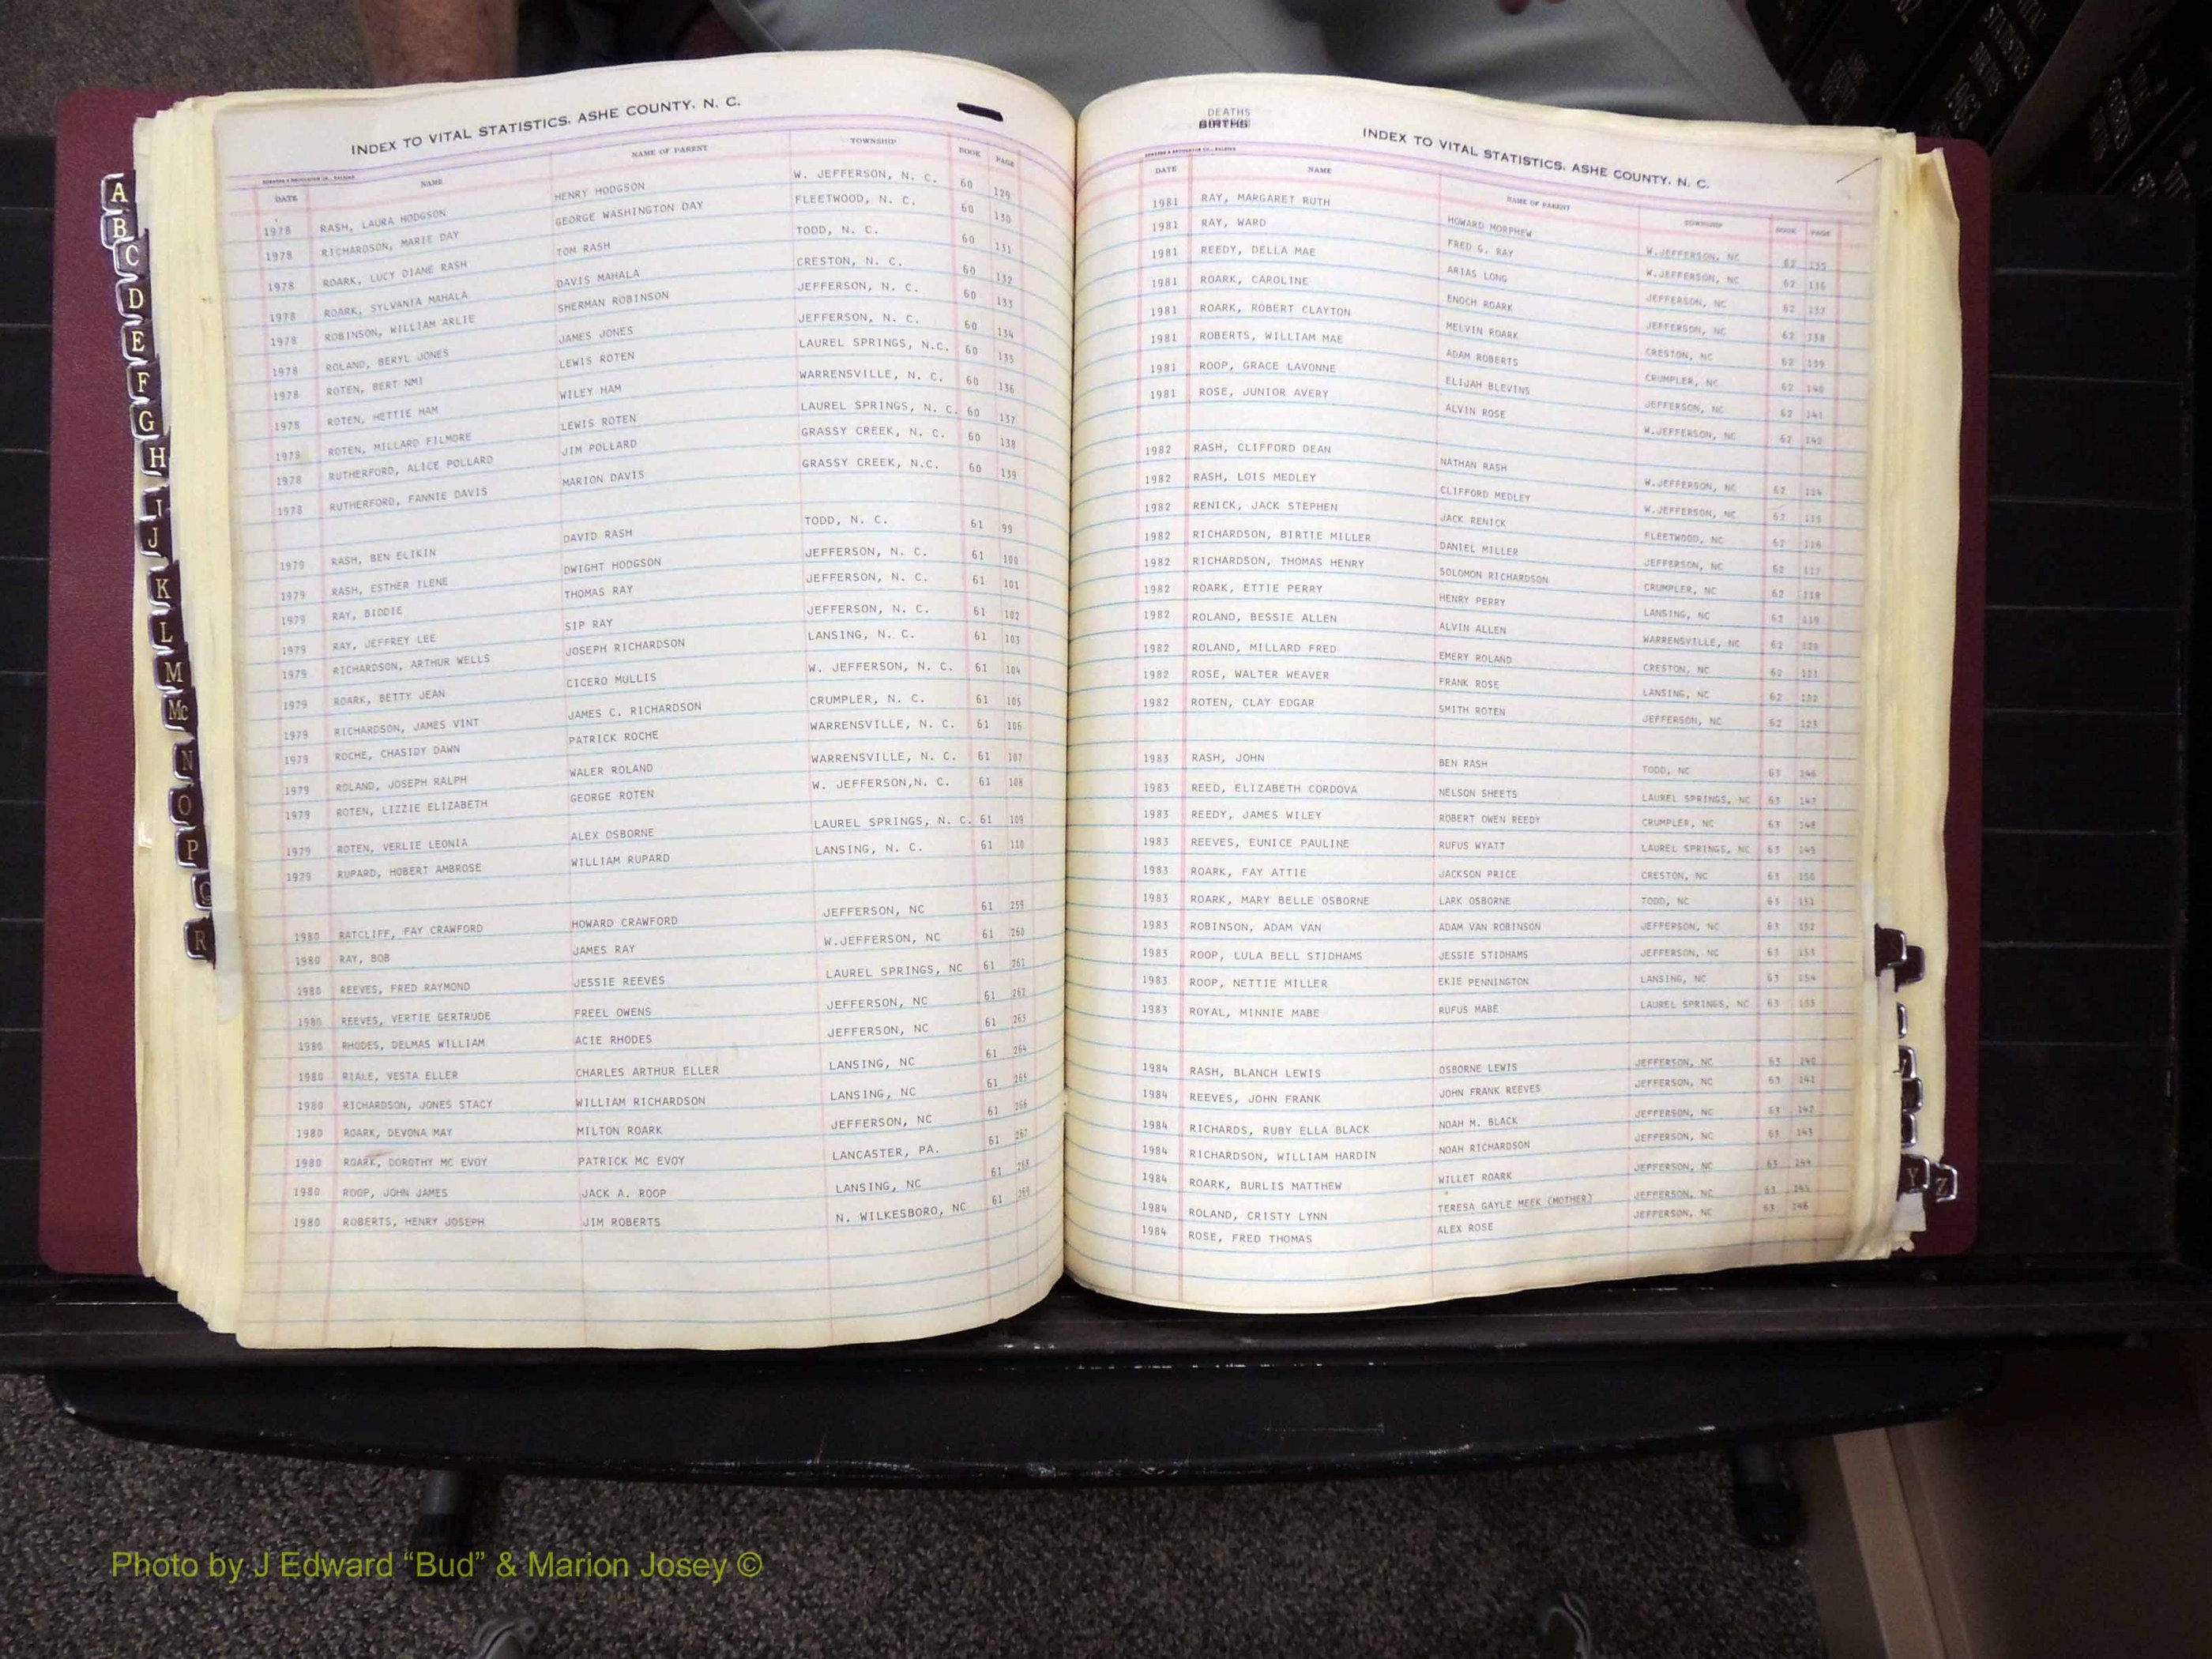 INDEX TO VITAL STATISTICS, ASHE COUNTY, N. C.
DATE NAME NAME OF PARENT TOWNSHIP BOOK PAGE
1978 RASH, LAURA HODGSON HENRY HODGSON W. JEFFERSON, N. C. 60 129
1978 RICHARDSON, MARIE DAY GEORGE WASHINGTON DAY FLEETWOOD, N. C. 60 130
1978 ROARK, LUCY DIANE RASH TOM RASH TODD, N. C. 60 131
1978 ROARK, SYLVANIA MAHALA DAVIS MAHALA CRESTON, N. C. 60 132
1978 ROBINSON, WILLIAM ARLIE SHERMAN ROBINSON JEFFERSON, N. C. 60 133
1978 ROLAND, BERYL JONES JAMES JONES JEFFERSON, N. C. 60 134
1978 ROTEN, BERT NMI LEWIS ROTEN LAUREL SPRINGS, N.C. 60 135
1978 ROTEN, HETTIE HAM WILEY HAM WARRENSVILLE, N. C. 60 136
1978 ROTEN, MILLARD FILMORE LEWIS ROTEN LAUREL SPRINGS, N. C. 60 137
1978 RUTHERFORD, ALICE POLLARD JIM POLLARD GRASSY CREEK, N. C. 60 138
1978 RUTHERFORD, FANNIE DAVIS MARION DAVIS GRASSY CREEK, N.C. 60 139
1979 RASH, BEN ELIKIN DAVID RASH TODD, N. C. 61 99
1979 RASH, ESTHER ILENE DWIGHT HODGSON JEFFERSON, N. C. 61 100
1979 RAY, BIDDIE THOMAS RAY JEFFERSON, N. C. 61 101
1979 RAY, JEFFREY LEE SIP RAY JEFFERSON, N. C. 61 102
1979 RICHARDSON, ARTHUR WELLS JOSEPH RICHARDSON LANSING, N. C. 61 103
1979 ROARK, BETTY JEAN CICERO MULLIS W. JEFFERSON, N. C. 61 104
1979 RICHARDSON, JAMES VINT JAMES C. RICHARDSON CRUMPLER, N. C. 61 105
1979 ROCHE, CHASIDY DAWN PATRICK ROCHE WARRENSVILLE, N. C. 61 106
1979 ROLAND, JOSEPH RALPH WALER ROLAND WARRENSVILLE, N. C. 61 107
1979 ROTEN, LIZZIE ELIZABETH GEORGE ROTEN W. JEFFERSON,N. C. 61 108
1979 ROTEN, VERLIE LEONIA ALEX OSBORNE LAUREL SPRINGS, N. C. 61 109
1979 RUPARD, HOBERT AMBROSE WILLIAM RUPARD LANSING, N. C. 61 110
1980 RATCLIFF, FAY CRAWFORD HOWARD CRAWFORD JEFFERSON, NC 61 259
1980 RAY, BOB JAMES RAY W.JEFFERSON, NC 61 260
1980 REEVES, FRED RAYMOND JESSIE REEVES LAUREL SPRINGS, NC 61 261
1980 REEVES, VERTIE GERTRUDE FREEL OWENS JEFFERSON, NC 61 262
1980 RHODES, DELMAS WILLIAM ACIE RHODES JEFFERSON, NC 61 263
1980 RIALE, VESTA ELLER CHARLES ARTHUR ELLER LANSING, NC 61 264
1980 RICHARDSON, JONES STACY WILLIAM RICHARDSON LANSING, NC 61 265
1980 ROARK, DEVONA MAY MILTON ROARK JEFFERSON, NC 61 266
1980 ROARK, DOROTHY MC EVOY PATRICK MC EVOY LANCASTER, PA. 61 267
1980 ROOP, JOHN JAMES JACK A. ROOP LANSING, NC 61 268
1980 ROBERTS, HENRY JOSEPH JIM ROBERTS N. WILKESBORO, NC 61 269
A
B
C
D
E
F
G
H
I
J
K
L
M
Mc
N
O
P
Q
R
DEATHS
BIRTHS
INDEX TO VITAL STATISTICS, ASHE COUNTY, N. C.
DATE NAME NAME OF PARENT TOWNSHIP BOOK PAGE
1981 RAY, MARGARET RUTH HOWARD MORPHEW W.JEFFERSON, NC 62 135
1981 RAY, WARD FRED G. RAY W.JEFFERSON, NC 62 136
1981 REEDY, DELLA MAE ARIAS LONG JEFFERSON, NC 62 137
1981 ROARK, CAROLINE ENOCH ROARK JEFFERSON, NC 62 138
1981 ROARK, ROBERT CLAYTON MELVIN ROARK CRESTON, NC 62 139
1981 ROBERTS, WILLIAM MAE ADAM ROBERTS CRUMPLER, NC 62 140
1981 ROOP, GRACE LAVONNE ELIJAH BLEVINS JEFFERSON, NC 62 141
1981 ROSE, JUNIOR AVERY ALVIN ROSE W.JEFFERSON, NC 62 142
1982 RASH, CLIFFORD DEAN NATHAN RASH W.JEFFERSON, NC 62 114
1982 RASH, LOIS MEDLEY CLIFFORD MEDLEY W.JEFFERSON, NC 62 115
1982 RENICK, JACK STEPHEN JACK RENICK FLEETWOOD, NC 62 116
1982 RICHARDSON, BIRTIE MILLER DANIEL MILLER JEFFERSON, NC 62 117
1982 RICHARDSON, THOMAS HENRY SOLOMON RICHARDSON CRUMPLER, NC 62 118
1982 ROARK, ETTIE PERRY HENRY PERRY LANSING, NC 62 119
1982 ROLAND, BESSIE ALLEN ALVIN ALLEN WARRENSVILLE, NC 62 120
1982 ROLAND, MILLARD FRED EMERY ROLAND CRESTON, NC 62 121
1982 ROSE, WALTER WEAVER FRANK ROSE LANSING, NC 62 122
1982 ROTEN, CLAY EDGAR SMITH ROTEN JEFFERSON, NC 62 123
1983 RASH, JOHN BEN RASH TODD, NC 63 146
1983 REED, ELIZABETH CORDOVA NELSON SHEETS LAUREL SPRINGS, NC 63 147
1983 REEDY, JAMES WILEY ROBERT OWEN REEDY CRUMPLER, NC 63 148
1983 REEVES, EUNICE PAULINE RUFUS WYATT LAUREL SPRINGS, NC 63 149
1983 ROARK, FAY ATTIE JACKSON PRICE CRESTON, NC 63 150
1983 ROARK, MARY BELLE OSBORNE LARK OSBORNE TODD, NC 63 151
1983 ROBINSON, ADAM VAN ADAM VAN ROBINSON JEFFERSON, NC 63 152
1983 ROOP, LULA BELL STIDHAMS JESSIE STIDHAMS JEFFERSON, NC 63 153
1983 ROOP, NETTIE MILLER EKIE PENNINGTON LANSING, NC 63 154
1983 ROYAL, MINNIE MABE RUFUS MABE LAUREL SPRINGS, NC 63 155
1984 RASH, BLANCH LEWIS OSBORNE LEWIS JEFFERSON, NC 63 140
1984 REEVES, JOHN FRANK JOHN FRANK REEVES JEFFERSON, NC 63 141
1984 RICHARDS, RUBY ELLA BLACK NOAH M. BLACK JEFFERSON, NC 63 142
1984 RICHARDSON, WILLIAM HARDIN NOAH RICHARDSON JEFFERSON, NC 63 143
1984 ROARK, BURLIS MATTHEW WILLET ROARK JEFFERSON, NC 63 144
1984 ROLAND, CRISTY LYNN TERESA GAYLE MEEK (MOTHER) JEFFERSON, NC 63 145
1984 ROSE, FRED THOMAS ALEX ROSE JEFFERSON, NC 63 146
Y
Z
Photo by J Edward “Bud” & Marion Josey ©